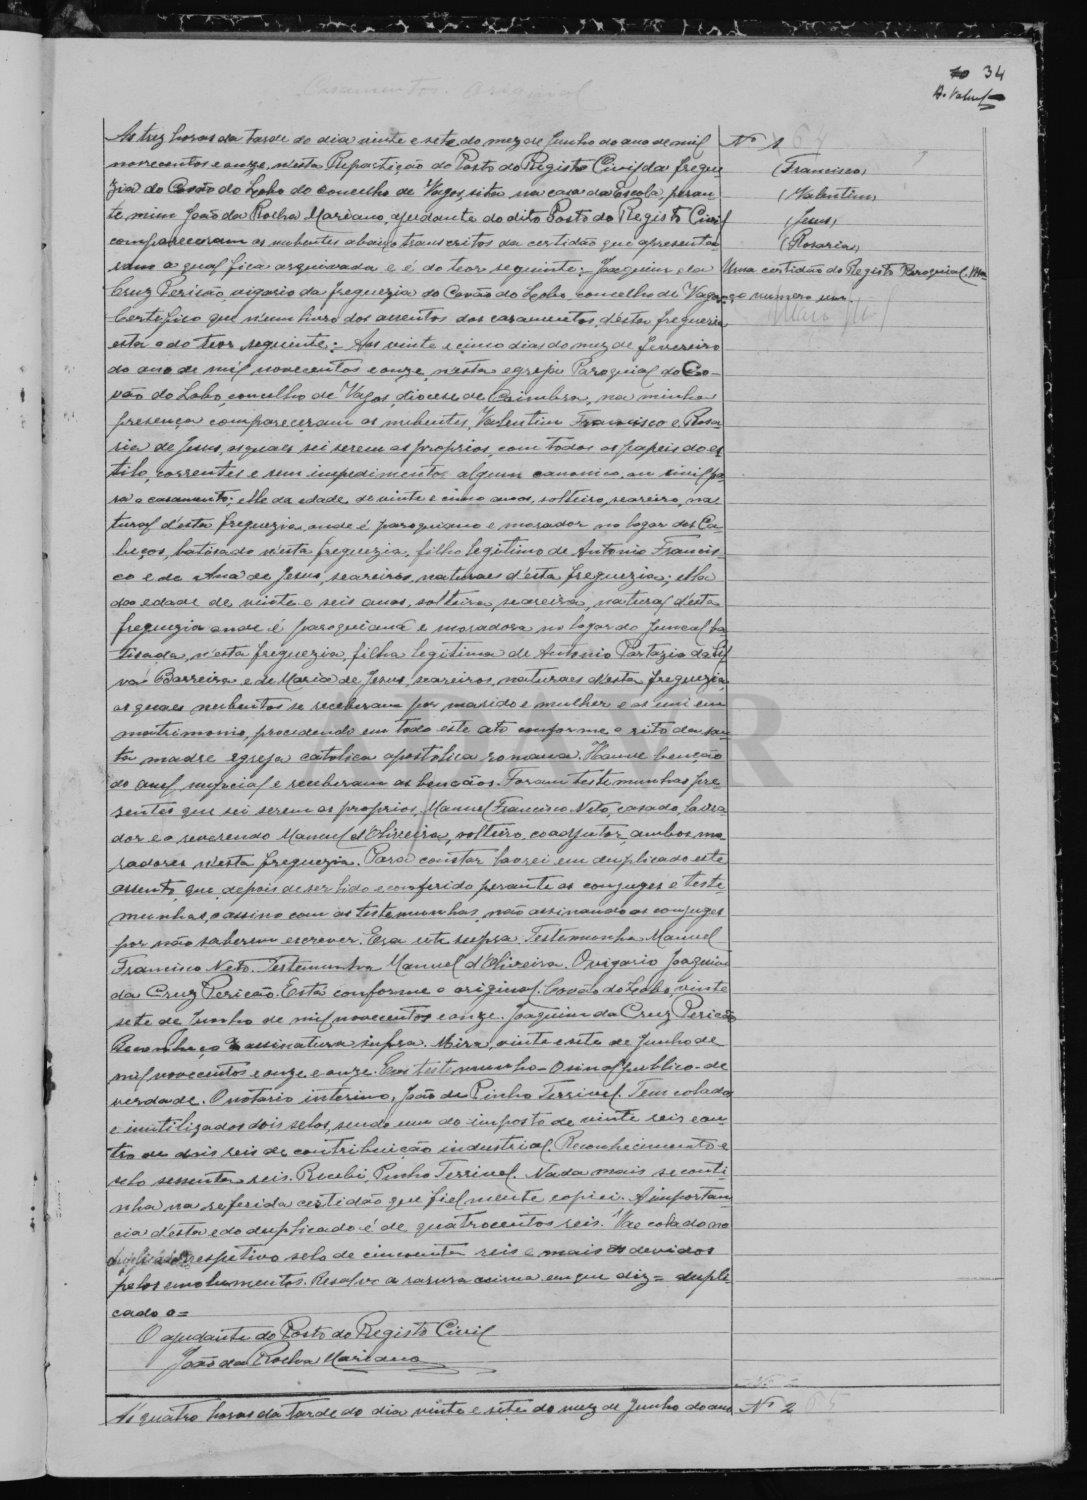 34
Casamentos. Original
Nº 1 64
(Francisco)
(Valentim)
(Jesus)
(Rosaria)
Uma certidão do Registo Paroquial. Ma-
ço numero um.
Ás trez horas da tarde do dia vinte e sete do mez de Junho do ano de mil
novecentos e onze, n'esta Repartição do Posto do Registo Civil da fregue-
zia do Covão do Lobo do concelho de Vagos, sita na casa da Escola, peran-
te mim João da Rocha Mariano, ajudante do dito Posto do Registo Civil
compareceram os nubentes abaixo transcritos da certidão que apresenta-
ram a qual fica arquivada e é do teor seguinte:- Joaquim da
Cruz Pericão, vigario da freguezia do Covão do Lobo, concelho de Vagos,
Certifico que n'um livro dos assentos dos casamentos, d'esta freguezia
está o do teor seguinte:- Aos vinte e cinco dias do mez de fevereiro
do ano de mil novecentos e onze, n'esta egreja Paroquial do Co-
vão do Lobo, concelho de Vagos, diocese de Coimbra, na minha
presença compareceram os nubentes, Valentim Francisco e Rosa-
ria de Jesus, os quaes sei serem os proprios, com todos os papeis do es-
tilo, correntes e sem impedimento algum canonico ou civil pa-
ra o casamento; elle da edade de vinte e cinco anos, solteiro, seareiro, na-
tural d'esta freguezia, onde é paroquiano e morador no logar dos Ca-
beços, batisado n'esta freguezia, filho legitimo de Antonio Francis-
co e de Ana de Jesus, seareiros, naturaes d'esta freguezia; ella
da edade de vinte e seis anos, solteira, seareira, natural d'esta
freguezia onde é paroquiana e moradora no logar do Juncal ba-
tisada, n'esta freguezia, filha legitima de Antonio da Sil-
va Barreira e de Maria de Jesus, seareiros, naturaes d'esta freguezia,
os quaes nubentes se receberam por marido e mulher e os uni em
matrimonio, procedendo em todo este ato conforme o rito da san-
ta madre egreja catolica apostolica romana. Houve benção
do anel nupcial e receberam as bençãos. Foram testemunhas pre-
sentes que sei serem os proprios, Manuel Francisco Neto, casado, lavra-
dor e o reverendo Manuel d'Oliveira, solteiro, coadjutor, ambos mo-
radores n'esta freguezia. Para constar lavrei em duplicado este
assento, que, depois de ser lido e conferido perante os conjuges e teste-
munhas, assino com as testemunhas, não assinando os conjuges
por não saberem escrever. Era ut supra. Testemunha Manuel
Francisco Neto. Testemunha Manuel d'Oliveira. O vigario Joaquim
da Cruz Pericão. Está conforme o original. Covão do Lobo, vinte
sete de Junho de mil novecentos e onze. Joaquim da Cruz Pericão
Reconheço a assinatura supra. Mira, vinte e sete de Junho de
mil novecentos e onze e onze. Em testemunho - O sinal publico - de
verdade. O notario interino, João de Pinho Terrivel. Tem colados
e inutilizados dois selos, sendo um do imposto de vinte reis e ou-
tro de dois reis de contribuição industrial. Reconhecimento e
selo sessenta reis. Recebi, Pinho Terrivel. Nada mais se conti-
nha na referida certidão que fielmente copiei. A importan-
cia d'esta e do duplicado é de quatrocentos reis. Vae colado no
duplicado o respetivo selo de cincoenta reis e mais os devidos
pelos emolumentos. Resalvo a rasura acima em que diz = dupli-
cado o =
O ajudante do Posto do Registo Civil
João da Rocha Mariano
Ás quatro horas da tarde do dia vinte e sete do mez de Junho do ano
Nº 2 65